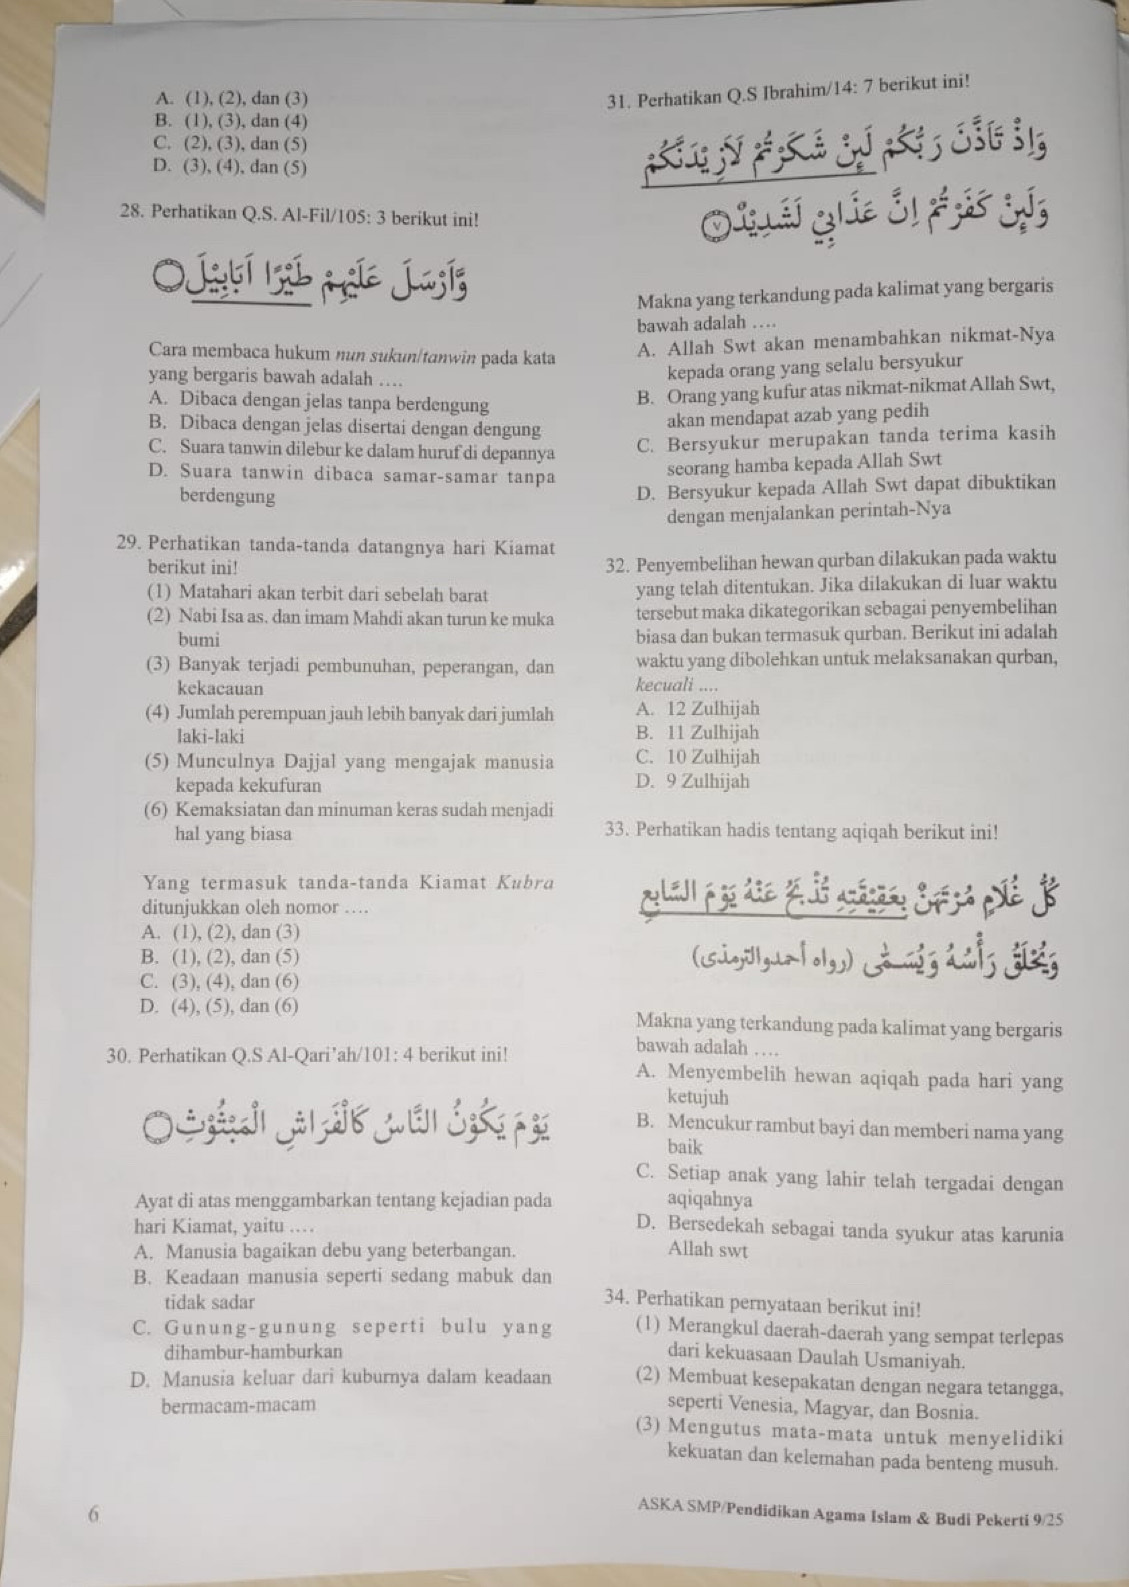 A. (1), (2), dan (3)
B. (1), (3), dan (4)
C. (2), (3), dan (5)
D. (3), (4), dan (5)
28. Perhatikan Q.S. Al-Fil/105: 3 berikut ini!
وَّاَرْسَلَ عَلَيْهِمْ طَيْرًا اَبَابِيْلَ
Cara membaca hukum nun sukun/tanwin pada kata
yang bergaris bawah adalah ....
A. Dibaca dengan jelas tanpa berdengung
B. Dibaca dengan jelas disertai dengan dengung
C. Suara tanwin dilebur ke dalam huruf di depannya
D. Suara tanwin dibaca samar-samar tanpa
berdengung
29. Perhatikan tanda-tanda datangnya hari Kiamat
berikut ini!
(1) Matahari akan terbit dari sebelah barat
(2) Nabi Isa as. dan imam Mahdi akan turun ke muka
bumi
(3) Banyak terjadi pembunuhan, peperangan, dan
kekacauan
(4) Jumlah perempuan jauh lebih banyak dari jumlah
laki-laki
(5) Munculnya Dajjal yang mengajak manusia
kepada kekufuran
(6) Kemaksiatan dan minuman keras sudah menjadi
hal yang biasa
Yang termasuk tanda-tanda Kiamat Kubra
ditunjukkan oleh nomor ....
A. (1), (2), dan (3)
B. (1), (2), dan (5)
C. (3), (4), dan (6)
D. (4), (5), dan (6)
30. Perhatikan Q.S Al-Qari'ah/101: 4 berikut ini!
يَوْمَ يَكُوْنُ النَّاسُ كَالْفَرَاشِ الْمَبْثُوْثِ
Ayat di atas menggambarkan tentang kejadian pada
hari Kiamat, yaitu ....
A. Manusia bagaikan debu yang beterbangan.
B. Keadaan manusia seperti sedang mabuk dan
tidak sadar
C. Gunung-gunung seperti bulu yang
dihambur-hamburkan
D. Manusia keluar dari kuburnya dalam keadaan
bermacam-macam
6
31. Perhatikan Q.S Ibrahim/14: 7 berikut ini!
وَاِذْ تَاَذَّنَ رَبُّكُمْ لَىِٕنْ شَكَرْتُمْ لَاَزِيْدَنَّكُمْ
وَلَىِٕنْ كَفَرْتُمْ اِنَّ عَذَابِيْ لَشَدِيْدٌ ٧
Makna yang terkandung pada kalimat yang bergaris
bawah adalah ....
A. Allah Swt akan menambahkan nikmat-Nya
kepada orang yang selalu bersyukur
B. Orang yang kufur atas nikmat-nikmat Allah Swt,
akan mendapat azab yang pedih
C. Bersyukur merupakan tanda terima kasih
seorang hamba kepada Allah Swt
D. Bersyukur kepada Allah Swt dapat dibuktikan
dengan menjalankan perintah-Nya
32. Penyembelihan hewan qurban dilakukan pada waktu
yang telah ditentukan. Jika dilakukan di luar waktu
tersebut maka dikategorikan sebagai penyembelihan
biasa dan bukan termasuk qurban. Berikut ini adalah
waktu yang dibolehkan untuk melaksanakan qurban,
kecuali ....
A. 12 Zulhijah
B. 11 Zulhijah
C. 10 Zulhijah
D. 9 Zulhijah
33. Perhatikan hadis tentang aqiqah berikut ini!
كُلُّ غُلَامٍ مُرْتَهَنٌ بِعَقِيْقَتِهِ تُذْبَحُ عَنْهُ يَوْمَ السَّابِعِ
وَيُحْلَقُ رَأْسُهُ وَيُسَمَّى (رواه أحمد والترمذى)
Makna yang terkandung pada kalimat yang bergaris
bawah adalah ....
A. Menyembelih hewan aqiqah pada hari yang
ketujuh
B. Mencukur rambut bayi dan memberi nama yang
baik
C. Setiap anak yang lahir telah tergadai dengan
aqiqahnya
D. Bersedekah sebagai tanda syukur atas karunia
Allah swt
34. Perhatikan pernyataan berikut ini!
(1) Merangkul daerah-daerah yang sempat terlepas
dari kekuasaan Daulah Usmaniyah.
(2) Membuat kesepakatan dengan negara tetangga,
seperti Venesia, Magyar, dan Bosnia.
(3) Mengutus mata-mata untuk menyelidiki
kekuatan dan kelemahan pada benteng musuh.
ASKA SMP/Pendidikan Agama Islam & Budi Pekerti 9/25